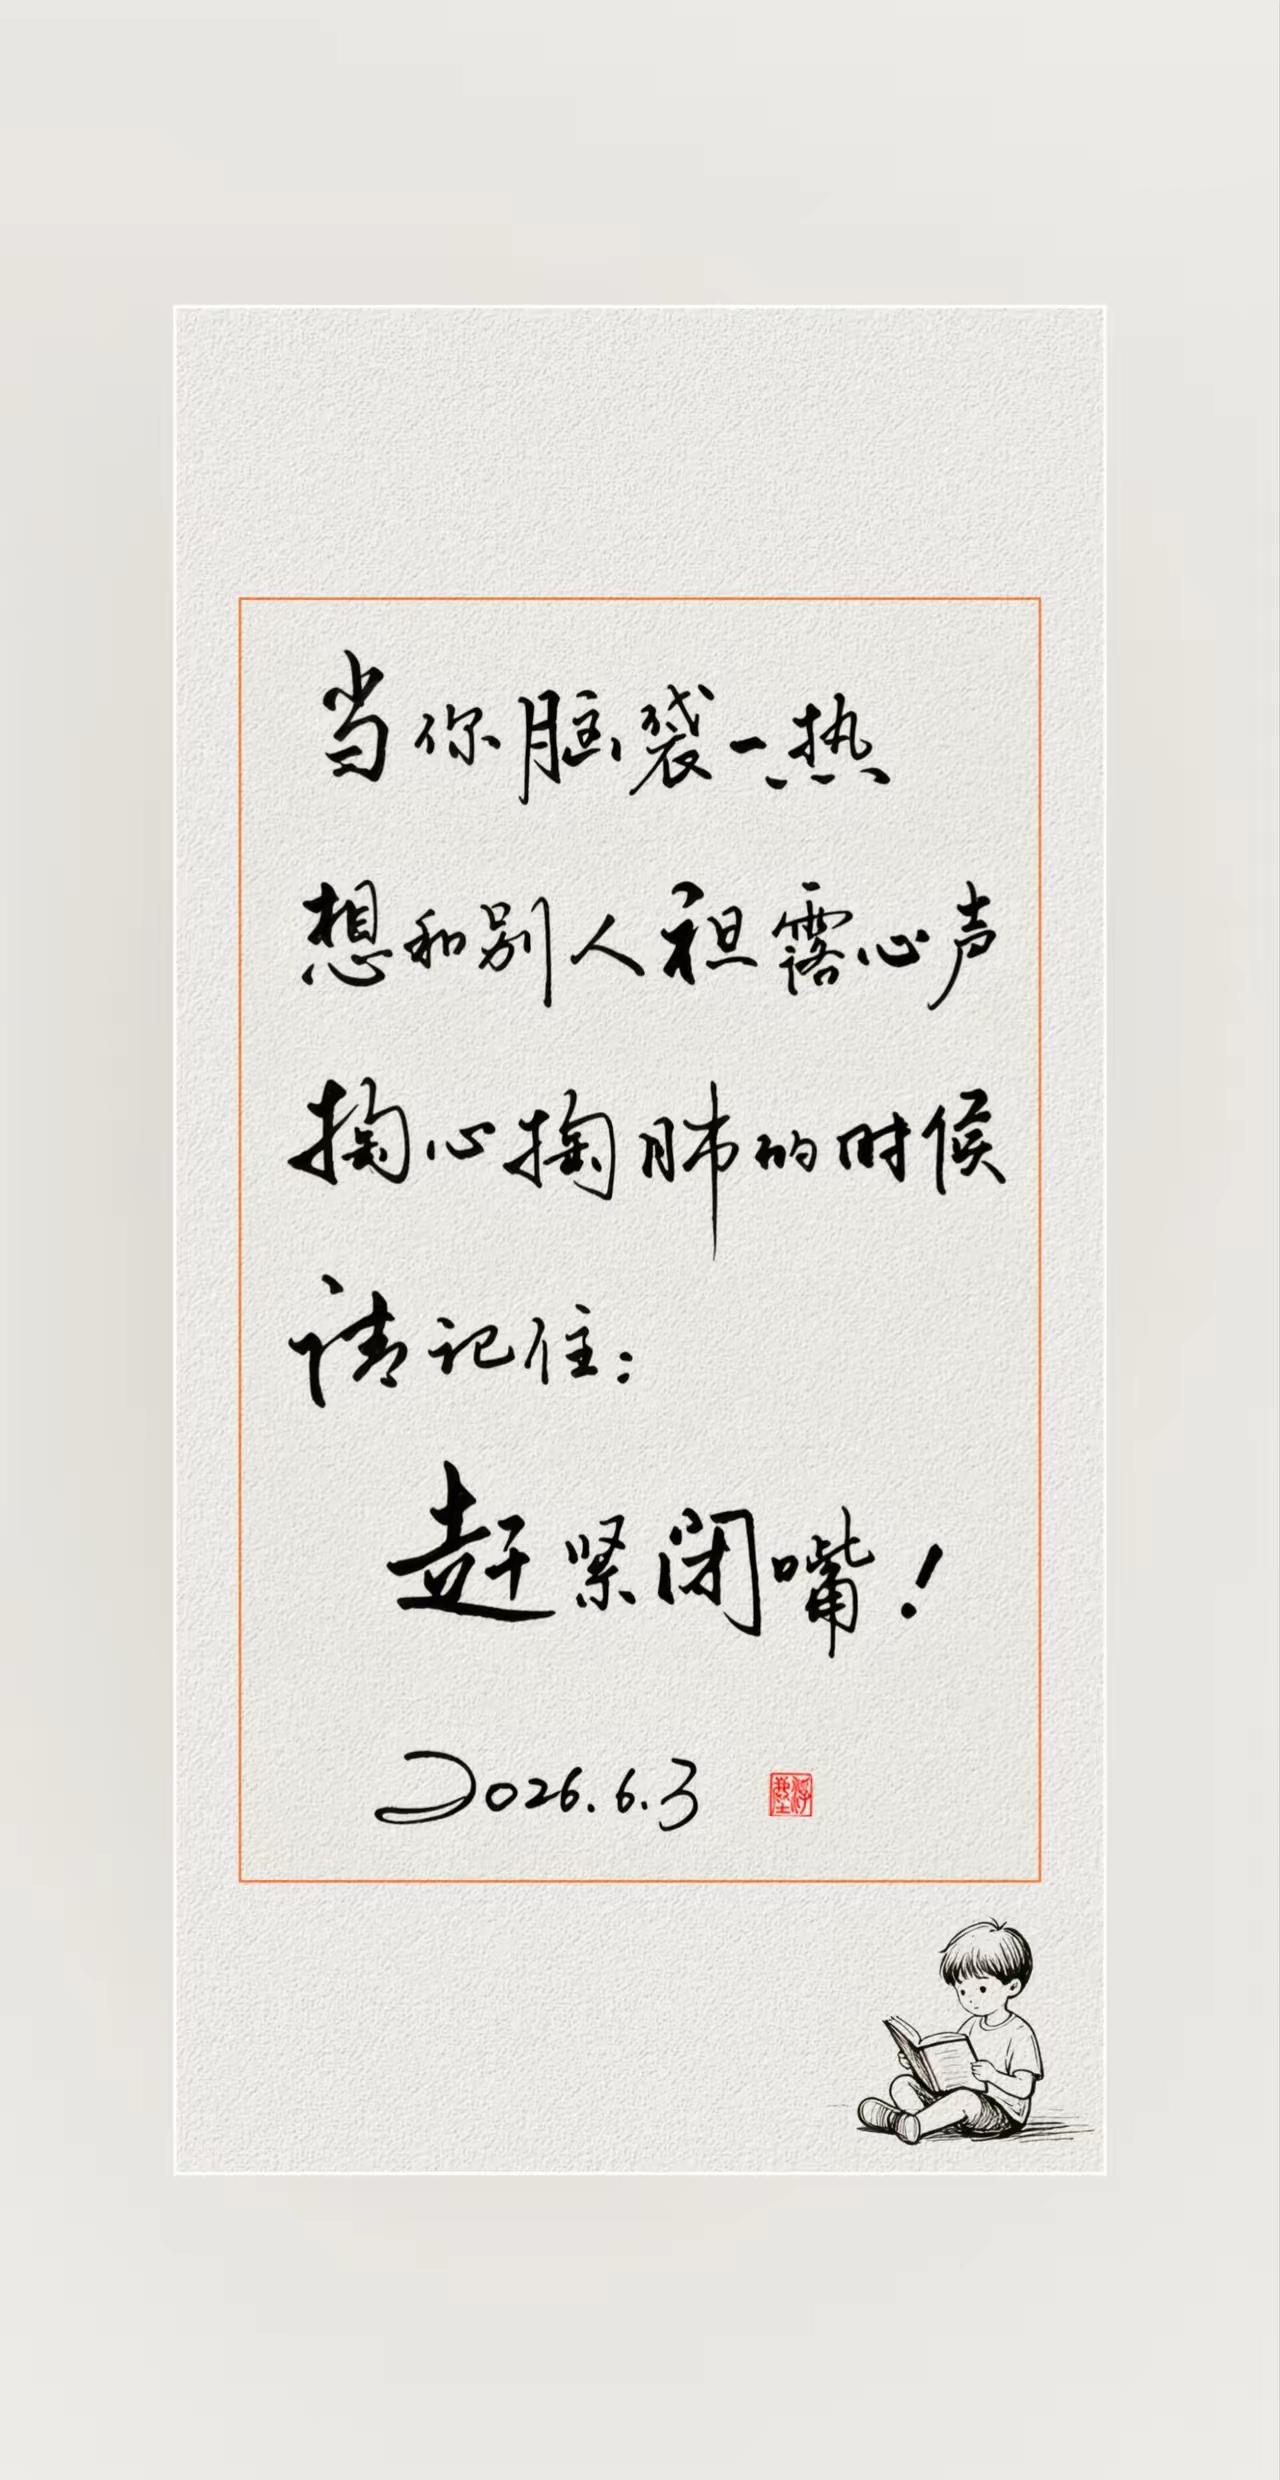 当你脑袋一热
想和别人袒露心声
掏心掏肺的时候
请记住：
赶紧闭嘴！
2026.6.3